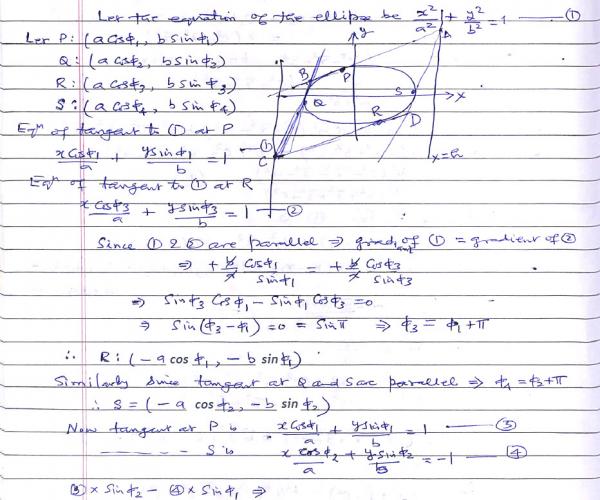 Let the equation of the ellipse be x²/a² + y²/b² = 1 — ①
Let P: (a cosϕ₁, b sinϕ₁)
Q: (a cosϕ₂, b sinϕ₂)
R: (a cosϕ₃, b sinϕ₃)
S: (a cosϕ₄, b sinϕ₄)
Eqⁿ of tangent to ① at P
x cosϕ₁/a + y sinϕ₁/b = 1 — ①
Eqⁿ of tangent to ① at R
x cosϕ₃/a + y sinϕ₃/b = 1 — ②
y
A
B
P
S
x
Q
R
D
C
x=h
Since ① & ② are parallel ⇒ gradient of ① = gradient of ②
⇒ + b/a cosϕ₁/sinϕ₁ = + b/a cosϕ₃/sinϕ₃
⇒ sinϕ₃ cosϕ₁ - sinϕ₁ cosϕ₃ = 0
⇒ sin(ϕ₃ - ϕ₁) = 0 = sinπ ⇒ ϕ₃ = ϕ₁ + π
∴ R: (- a cos ϕ₁, - b sin ϕ₁)
Similarly since tangent at Q and S are parallel ⇒ ϕ₄ = ϕ₂ + π
∴ S = (- a cos ϕ₂, - b sin ϕ₂)
Now tangent at P is x cosϕ₁/a + y sinϕ₁/b = 1 — ③
— — — — S is x cosϕ₂/a + y sinϕ₂/b = -1 — ④
③ × sinϕ₂ - ④ × sinϕ₁ ⇒